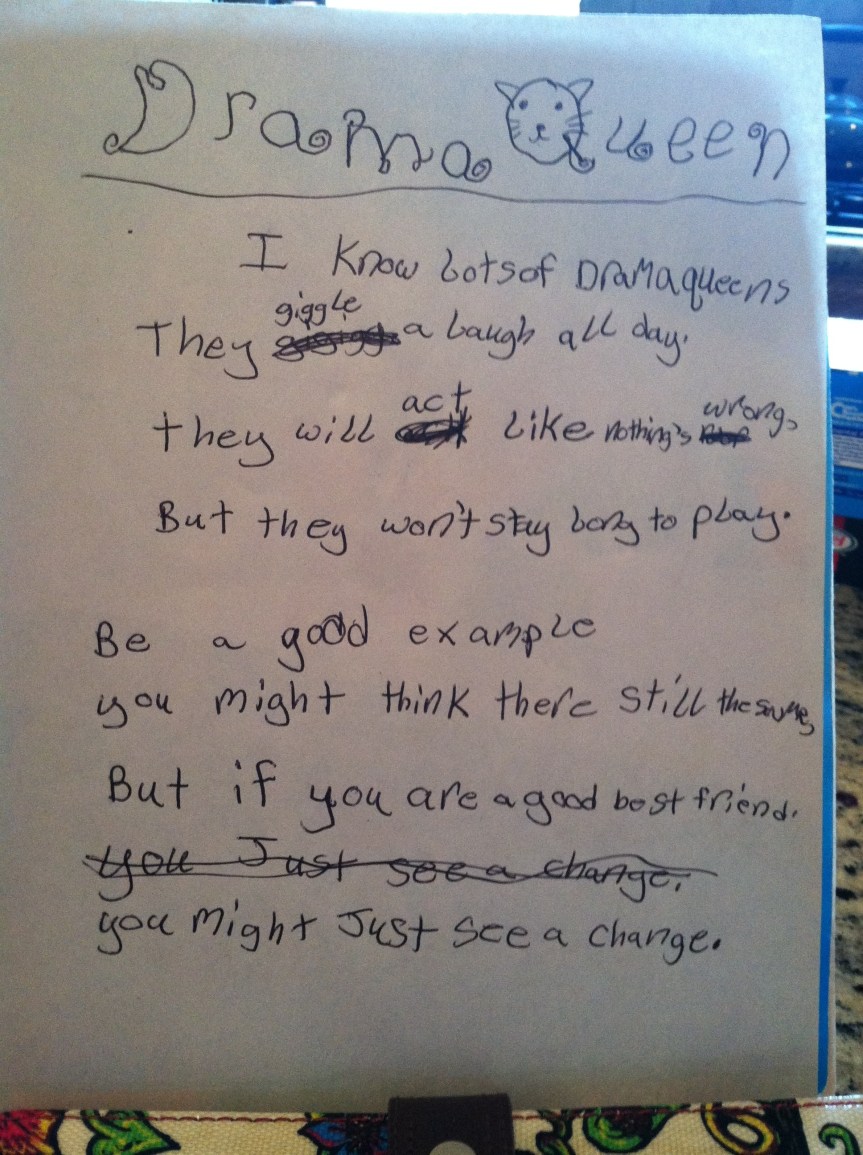 Drama Queen
I Know Lots of Dramaqueens
They giggle a laugh all day.
they will act like nothing's wrong,
But they won't stay long to play.
Be a good example
you might think there still the same,
But if you are a good best friend.
you Just see a change.
you might Just see a change.